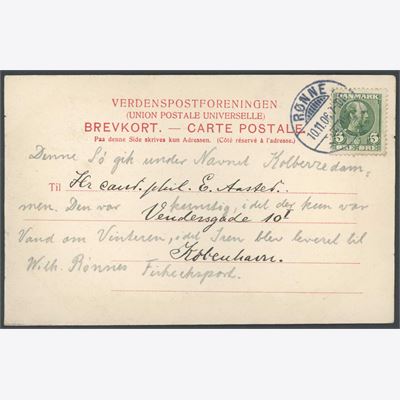 VERDENSPOSTFORENINGEN
(UNION POSTALE UNIVERSELLE)
BREVKORT. — CARTE POSTALE.
Paa denne Side skrives kun Adressen. (Côté réservé à l'adresse.)
RØNNE
10.11.06
DANMARK
5 5
ØRE
Denne Sø gik under Navnet Kolberredam-
Til Hr cand. phil. E. Aasted.
men. Den var kunstig, idet der kun var
Vendersgade 10
Vand om Vinteren, idet Isen blev leveret til
København.
Wilh. Rønnes Fiskeeksport.